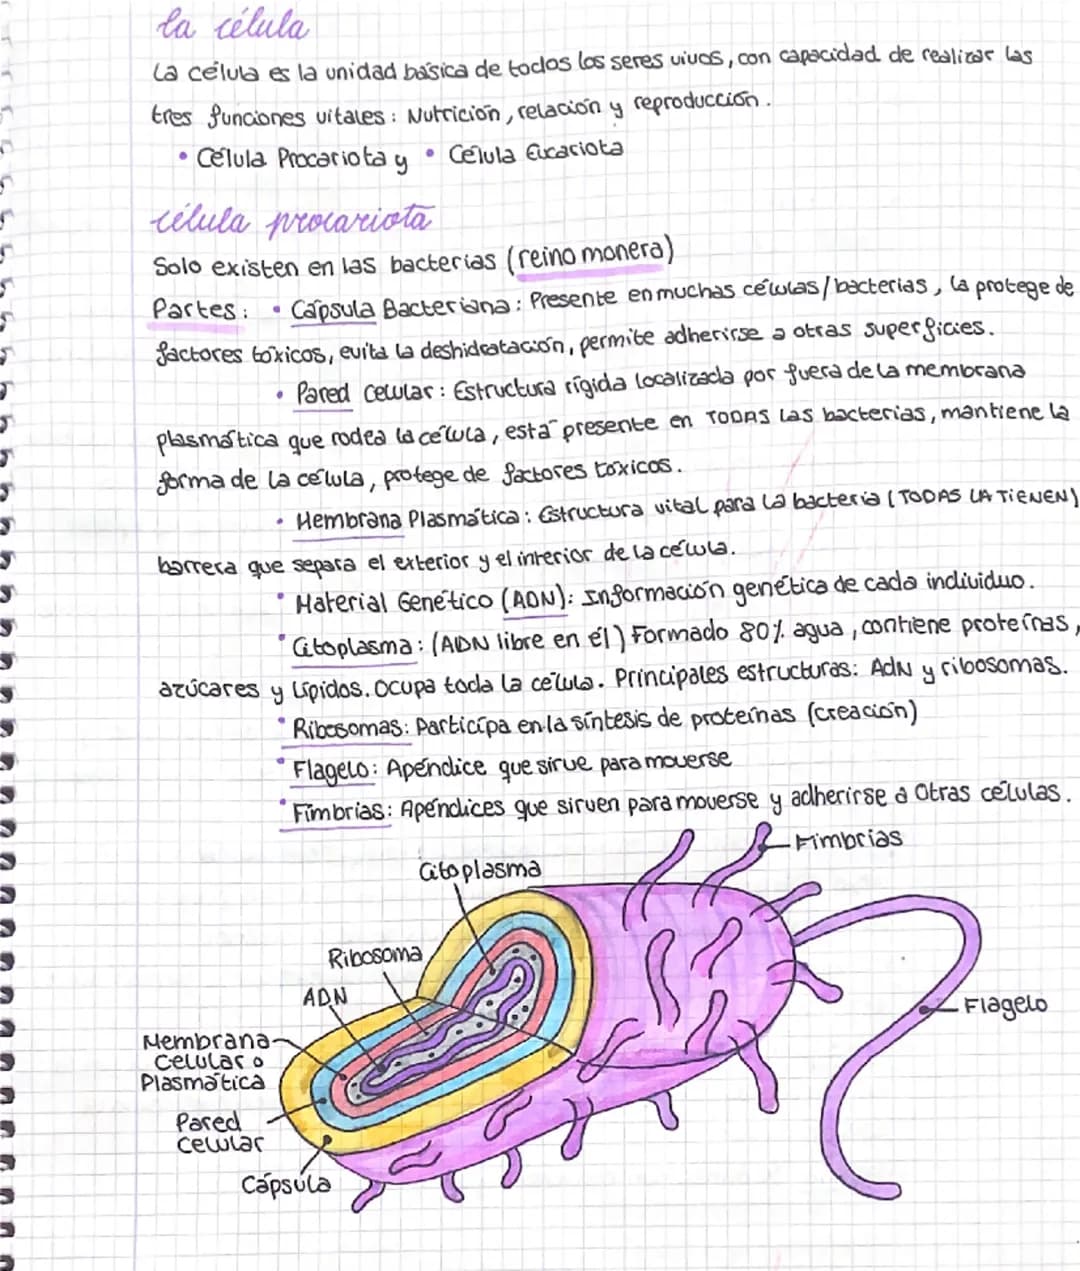 la célula
La célula es la unidad básica de todos los seres vivos, con capacidad de realizar las
tres funciones vitales: Nutrición, relación y reproducción.
• Célula Procariota y • Célula Eucariota
célula procariota
Solo existen en las bacterias (reino monera)
Partes: • Cápsula Bacteriana: Presente en muchas células/bacterias, la protege de
factores tóxicos, evita la deshidratación, permite adherirse a otras superficies.
• Pared celular: Estructura rígida localizada por fuera de la membrana
plasmática que rodea la célula, está presente en TODAS las bacterias, mantiene la
forma de la célula, protege de factores tóxicos.
• Membrana Plasmática: Estructura vital para la bacteria (TODAS LA TIENEN)
barrera que separa el exterior y el interior de la célula.
• Material Genético (ADN): Información genética de cada individuo.
• Citoplasma: (ADN libre en él) Formado 80% agua, contiene proteínas,
azúcares y lípidos. Ocupa toda la célula. Principales estructuras: AdN y ribosomas.
• Ribosomas: Participa en la síntesis de proteínas (creación)
• Flagelo: Apéndice que sirve para moverse
• Fimbrias: Apéndices que sirven para moverse y adherirse a otras células.
Fimbrias
Citoplasma
Ribosoma
ADN
Flagelo
Membrana
Celular o
Plasmática
Pared
Celular
Cápsula